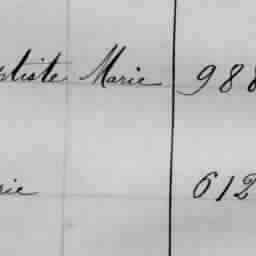 ptiste Marie 988
rie 612